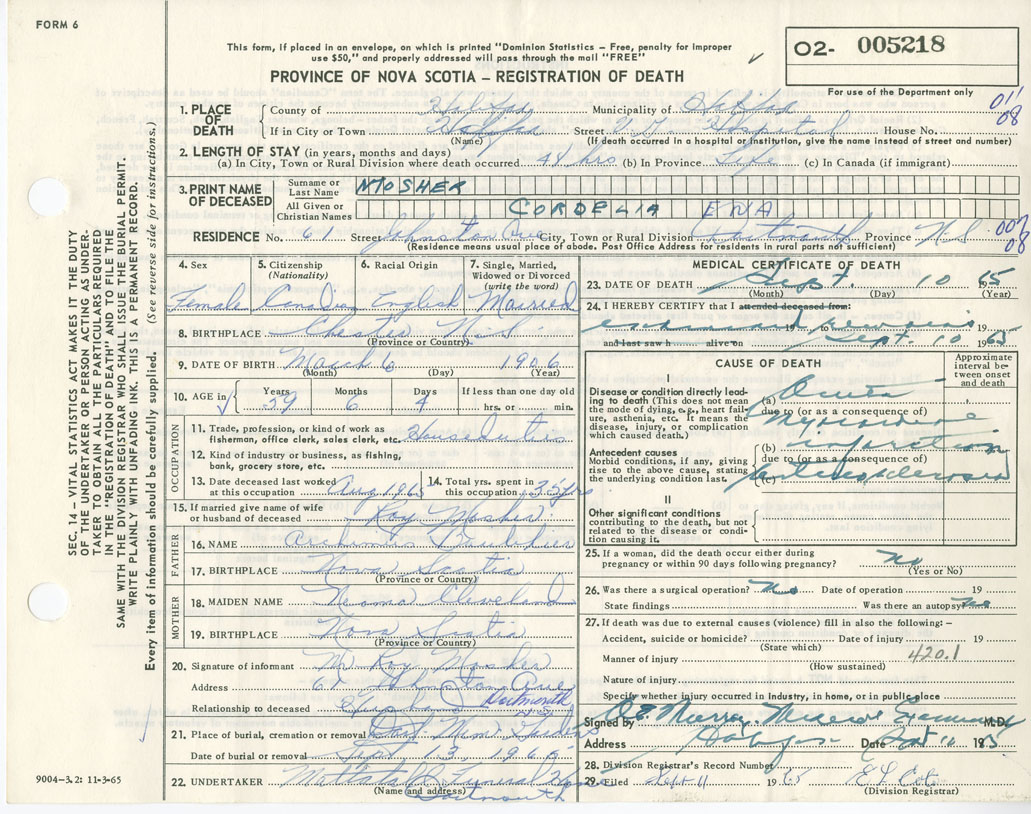 FORM 6
This form, if placed in an envelope, on which is printed "Dominion Statistics - Free, penalty for improper
use $50," and properly addressed will pass through the mail "FREE"
PROVINCE OF NOVA SCOTIA - REGISTRATION OF DEATH
O2- 005218
For use of the Department only
011
08
SEC. 14 - VITAL STATISTICS ACT MAKES IT THE DUTY
OF THE UNDERTAKER OR PERSON ACTING AS UNDER-
TAKER TO OBTAIN ALL THE PARTICULARS REQUIRED
IN THE "REGISTRATION OF DEATH" AND TO FILE THE
SAME WITH THE DIVISION REGISTRAR WHO SHALL ISSUE THE BURIAL PERMIT.
WRITE PLAINLY WITH UNFADING INK. THIS IS A PERMANENT RECORD.
Every item of information should be carefully supplied. (See reverse side for instructions.)
1. PLACE OF DEATH
County of Halifax Municipality of Halifax
If in City or Town Halifax Street V. G. Hospital House No.
(Name) (If death occurred in a hospital or institution, give the name instead of street and number)
2. LENGTH OF STAY (in years, months and days)
(a) In City, Town or Rural Division where death occurred 48 hrs (b) In Province Life (c) In Canada (if immigrant)
3. PRINT NAME OF DECEASED
Surname or Last Name MOSHER
All Given or Christian Names CORDELIA ENA
RESIDENCE No. 61 Street Johnston Ave City, Town or Rural Division Dartmouth Province N.S. 007
08
(Residence means usual place of abode. Post Office Address for residents in rural parts not sufficient)
4. Sex Female
5. Citizenship (Nationality) Canadian
6. Racial Origin English
7. Single, Married, Widowed or Divorced (write the word) Married
8. BIRTHPLACE Chester N.S.
(Province or Country)
9. DATE OF BIRTH March 6 1906
(Month) (Day) (Year)
10. AGE in Years 59 Months 6 Days 4 If less than one day old hrs. or min.
OCCUPATION
11. Trade, profession, or kind of work as
fisherman, office clerk, sales clerk, etc. Houseduties
12. Kind of industry or business, as fishing,
bank, grocery store, etc.
13. Date deceased last worked
at this occupation Aug 1965
14. Total yrs. spent in
this occupation 35 yrs
15. If married give name of wife
or husband of deceased Roy Mosher
FATHER
16. NAME
17. BIRTHPLACE Nova Scotia
(Province or Country)
MOTHER
18. MAIDEN NAME Cleveland
19. BIRTHPLACE Nova Scotia
(Province or Country)
20. Signature of informant Mr Roy Mosher
Address 61 Johnston Ave
Dartmouth
Relationship to deceased Husband
21. Place of burial, cremation or removal Dart Mem. Gardens
Date of burial or removal Sept 13 1965
22. UNDERTAKER Mattatall Funeral Home
(Name and address) Dartmouth
9004-3.2: 11-3-65
MEDICAL CERTIFICATE OF DEATH
23. DATE OF DEATH Sept. 10 65
(Month) (Day) (Year)
24. I HEREBY CERTIFY that I attended deceased from:
examined 19 to remains 19
and last saw h alive on Sept. 10 1965
CAUSE OF DEATH
Approximate interval between onset and death
I
Disease or condition directly lead-
ing to death (This does not mean
the mode of dying, e.g., heart fail-
ure, asthenia, etc. It means the
disease, injury, or complication
which caused death.)
(a) Acute
due to (or as a consequence of)
myocardial
Antecedent causes
Morbid conditions, if any, giving
rise to the above cause, stating
the underlying condition last.
(b) infarction
due to (or as a consequence of)
(c) arteriosclerosis
II
Other significant conditions
contributing to the death, but not
related to the disease or condi-
tion causing it.
25. If a woman, did the death occur either during
pregnancy or within 90 days following pregnancy? No
(Yes or No)
26. Was there a surgical operation? No Date of operation 19
State findings Was there an autopsy No
27. If death was due to external causes (violence) fill in also the following: -
Accident, suicide or homicide? Date of injury 19
(State which)
Manner of injury 420.1
(How sustained)
Nature of injury
Specify whether injury occurred in industry, in home, or in public place
Signed by Murray, Medical Examiner M.D.
Address Halifax Date Sept 11 1965
28. Division Registrar's Record Number
29. Filed Sept 11 1965
(Division Registrar)